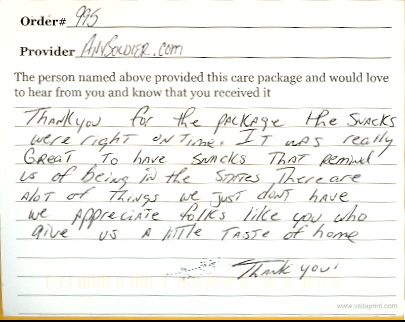 Order# 995
Provider ANYSOLDIER.com
The person named above provided this care package and would love
to hear from you and know that you received it
Thankyou for the package the snacks
were right on time. It was really
Great to have snacks that remind
us of being in the States There are
alot of things we just don't have
we appreciate folks like you who
give us a little taste of home
Thank you!
www.vistaprint.com